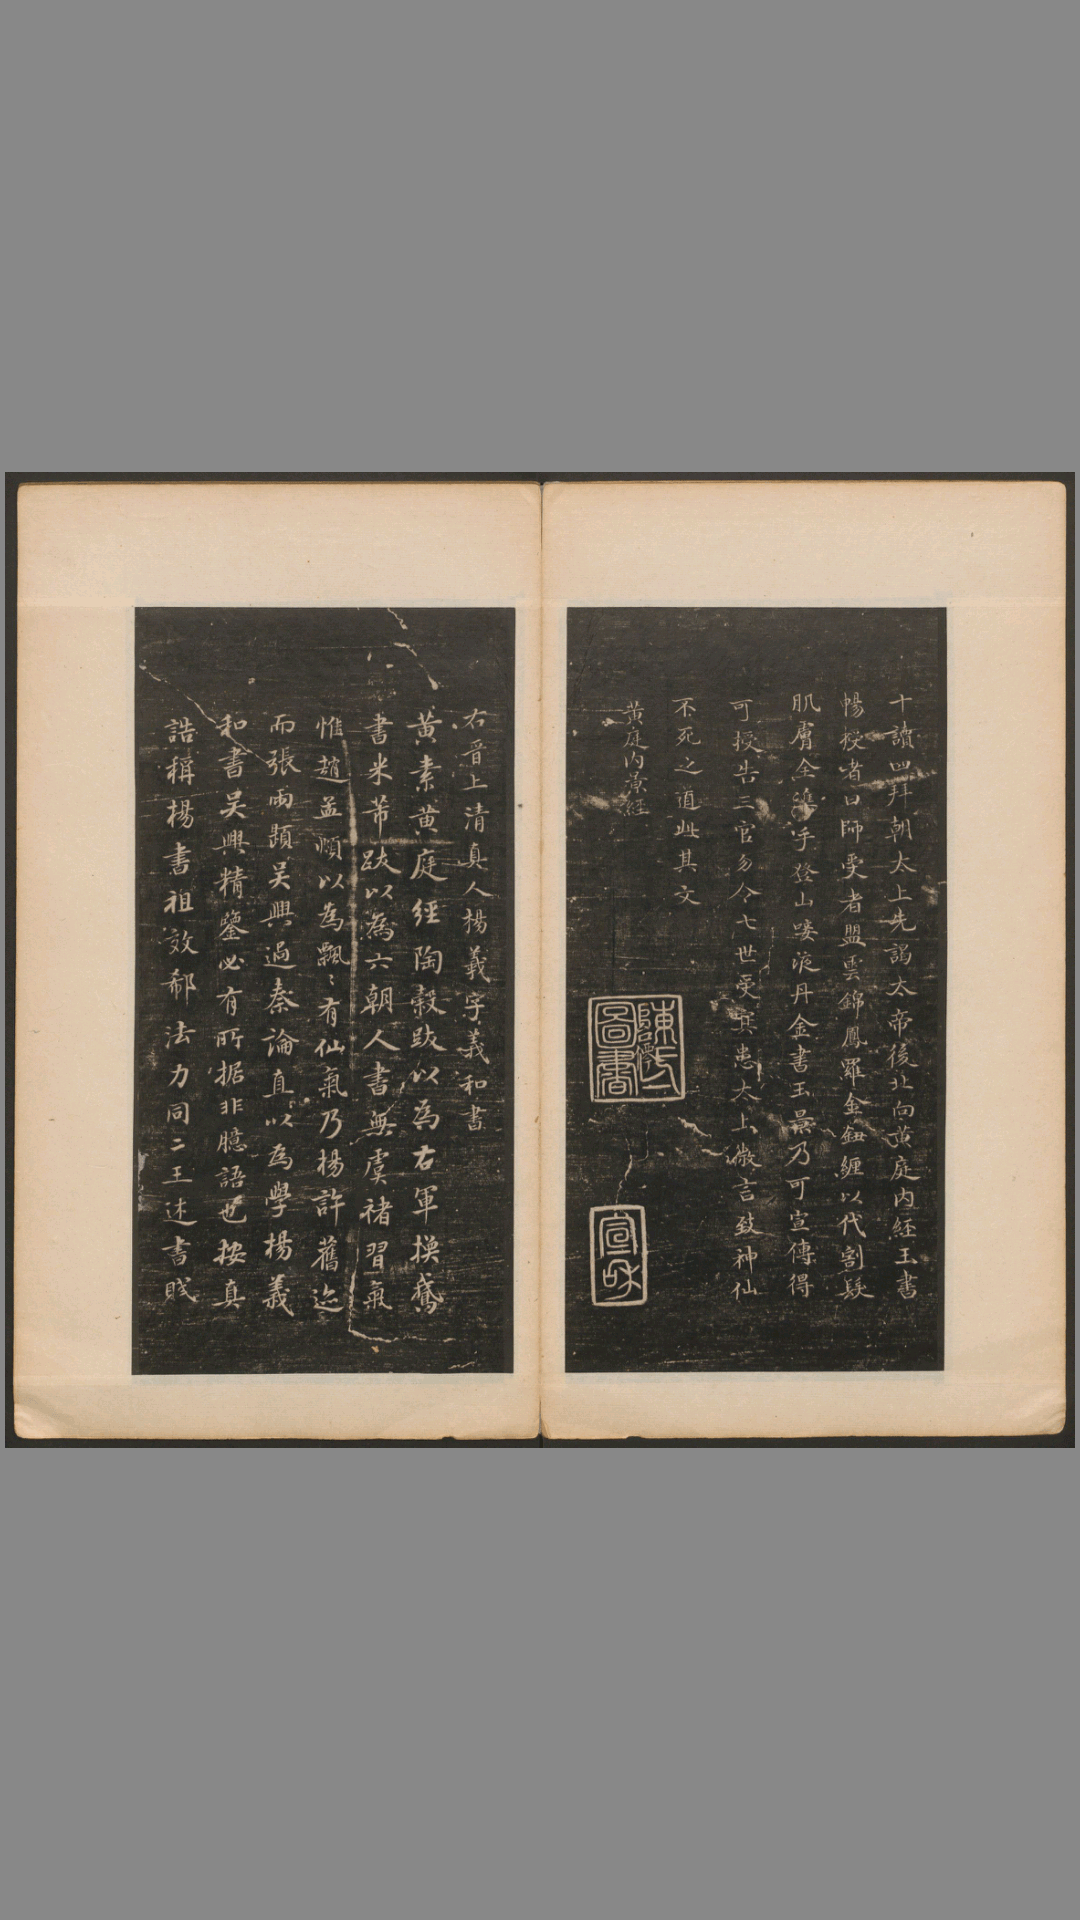 十讀四拜朝太上先謁太帝後北向黃庭内經玉書
暢授者曰師受者盟雲錦鳳羅金鈕纏以代割髮
肌膚全携手登山歃液丹金書玉景乃可宣傳得
可授告三官勿令七世受冥患太上微言致神仙
不死之道此其文
黃庭内景經
陳氏圖書
宣和
右晉上清真人楊羲字羲和書
黃素黃庭經陶穀跋以為右軍換鵞
書米芾跋以為六朝人書無虞褚習氣
惟趙孟頫以為飄〻有仙氣乃楊許舊迹
而張雨題吳興過秦論直以為學楊羲
和書吳興精鑒必有所据非臆語也按真
誥稱楊書祖效郗法力同二王述書賦